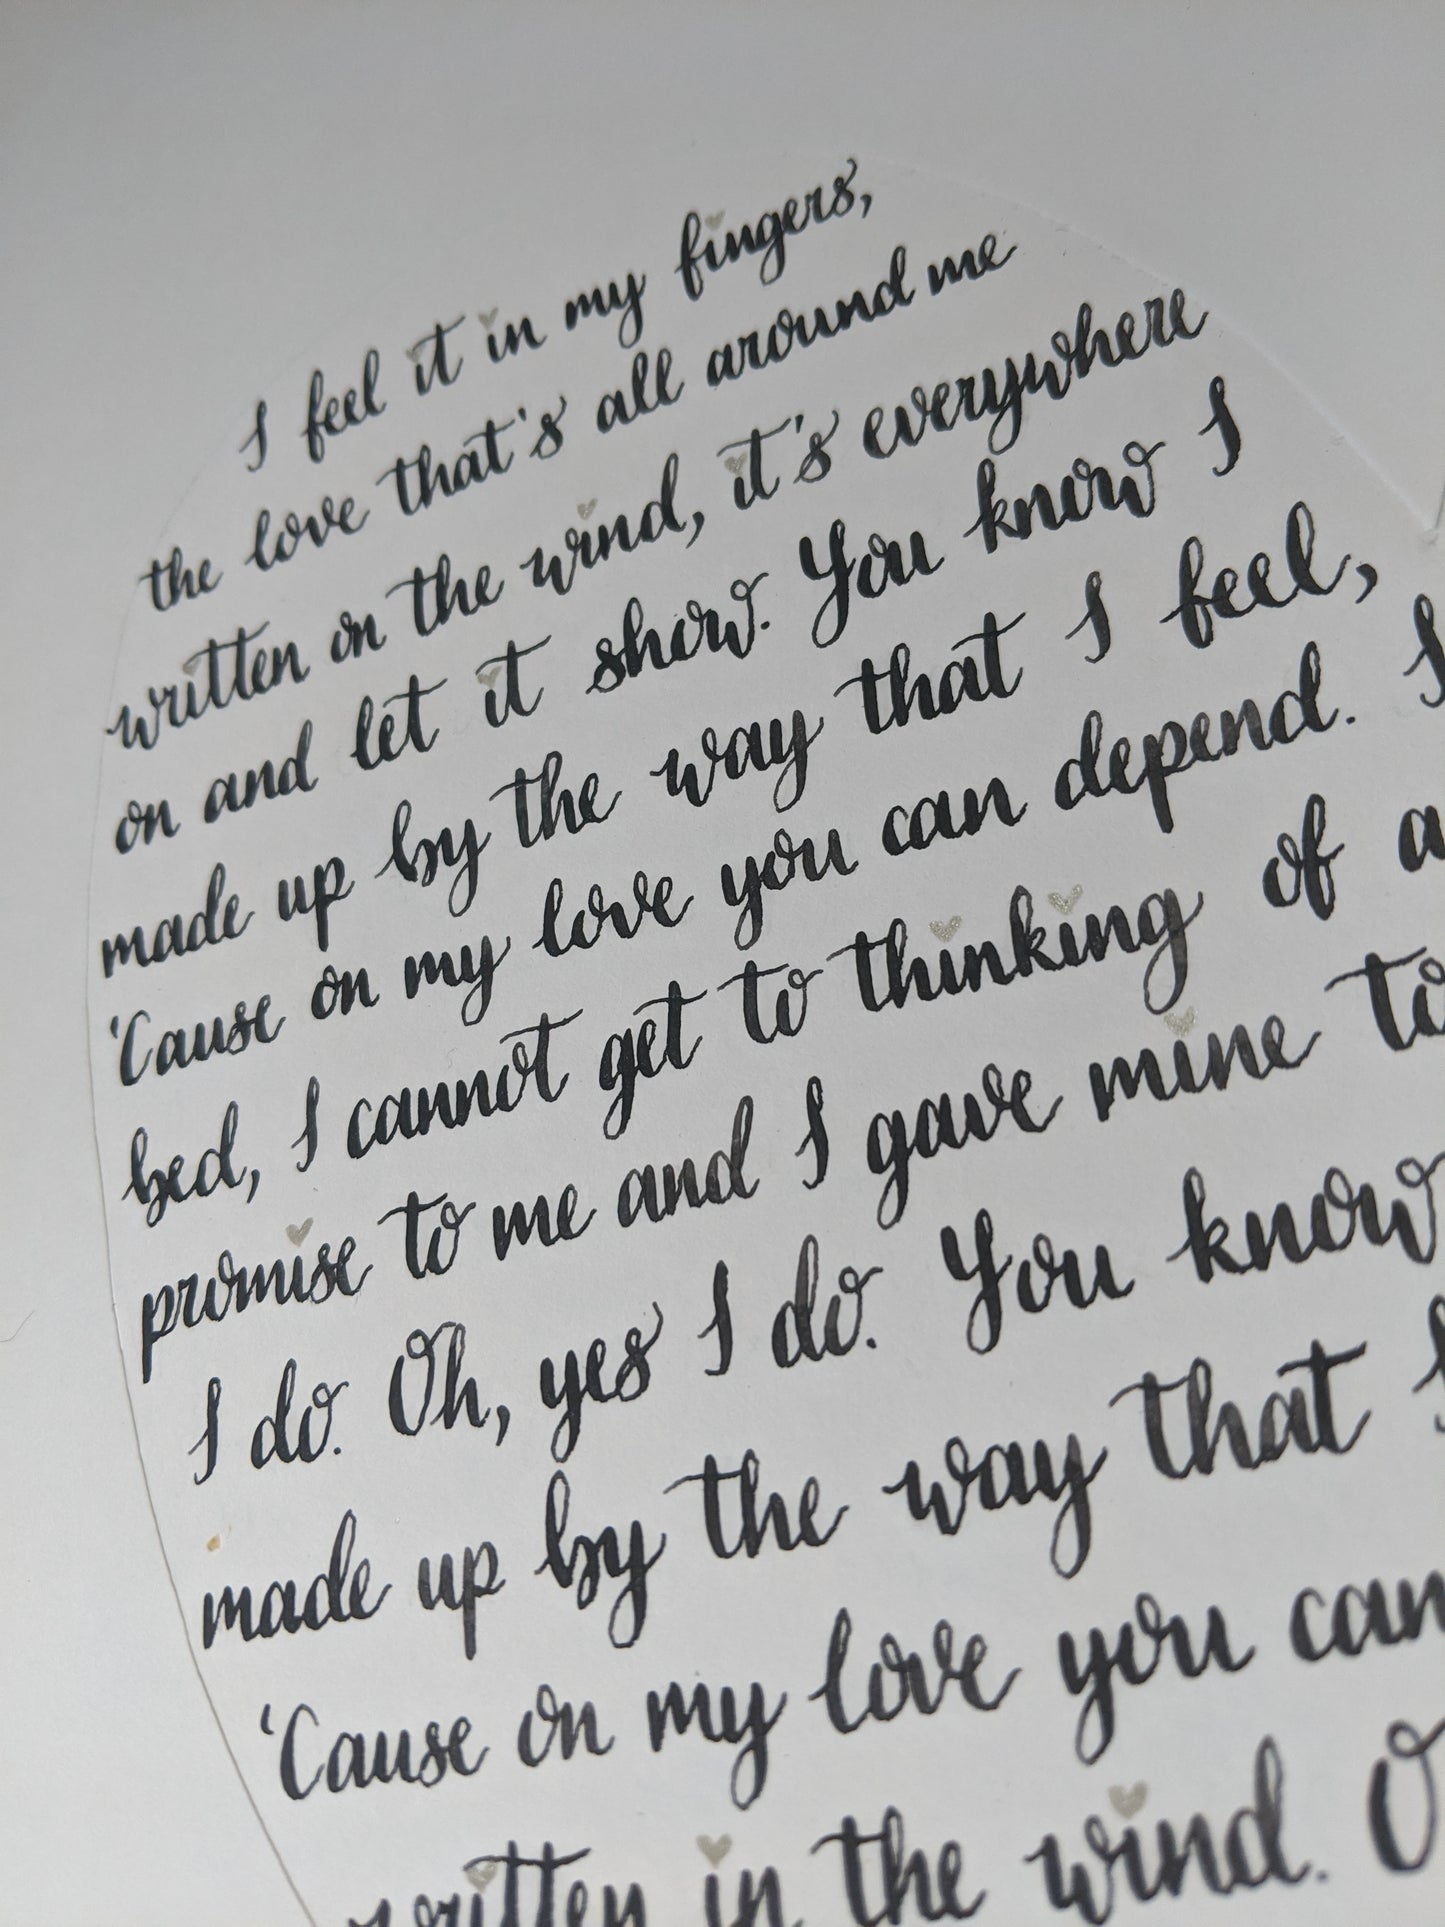 I feel it in my fingers,
the love that's all around me
written on the wind, it's everywhere
on and let it show. You know I
made up by the way that I feel,
'Cause on my love you can depend. I
bed, I cannot get to thinking of a
promise to me and I gave mine to
I do. Oh, yes I do. You know
made up by the way that
'Cause on my love you can
written in the wind. O